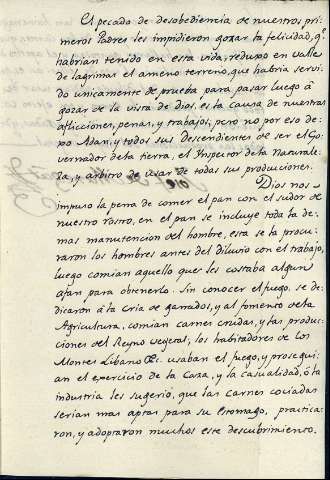 El pecado de desobediencia de nuestros pri-
meros Padres les impidieron gozar la felicidad, q.^e
habrian tenido en esta vida, reduxo en valle
de lagrimas el ameno terreno, que habria servi
do unicamente de prueba para pasar luego á
gozar de la vista de Dios, es la causa de nuestras
aflicciones, penas, y trabajos; pero no por eso de-
xó Adan, y todos sus descendientes de ser el Go-
vernador de la tierra, el Inspector de la Natural-
za, y arbitro de usar de todas sus producciones.
Dios nos
impuso la pena de comer el pan con el sudor de
nuestro rostro, en el pan se incluye toda la de-
mas manutencion del hombre, esta se la procu-
raron los hombres antes del diluvio con el trabajo,
luego comian aquello que les costaba algun
afan para obtenerlo. Sin conocer el fuego, se de-
dicaron á la cria de ganados, y al fomento de la
Agricultura, comian carnes crudas, y las produc-
ciones del Reyno vegetal, los habitadores de los
Montes Libano &c. usaban el fuego, y prosegui-
an el exercicio de la Caza, y la casualidad, ó la
industria les sugerió, que las carnes cociadas
serian mas aptas para su Estomago, practica-
ron, y adoptaron muchos este descubrimiento.